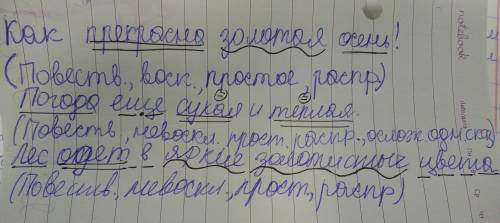 Как прекрасна золотая осень!
(Повеств., воск., простое, распр)
Погода еще сухая и теплая.
(Повеств, невоскл. прост. распр., осложн одн ск)
Лес одет в яркие золотистые цвета
(Повеств, невоскл, прост, распр)